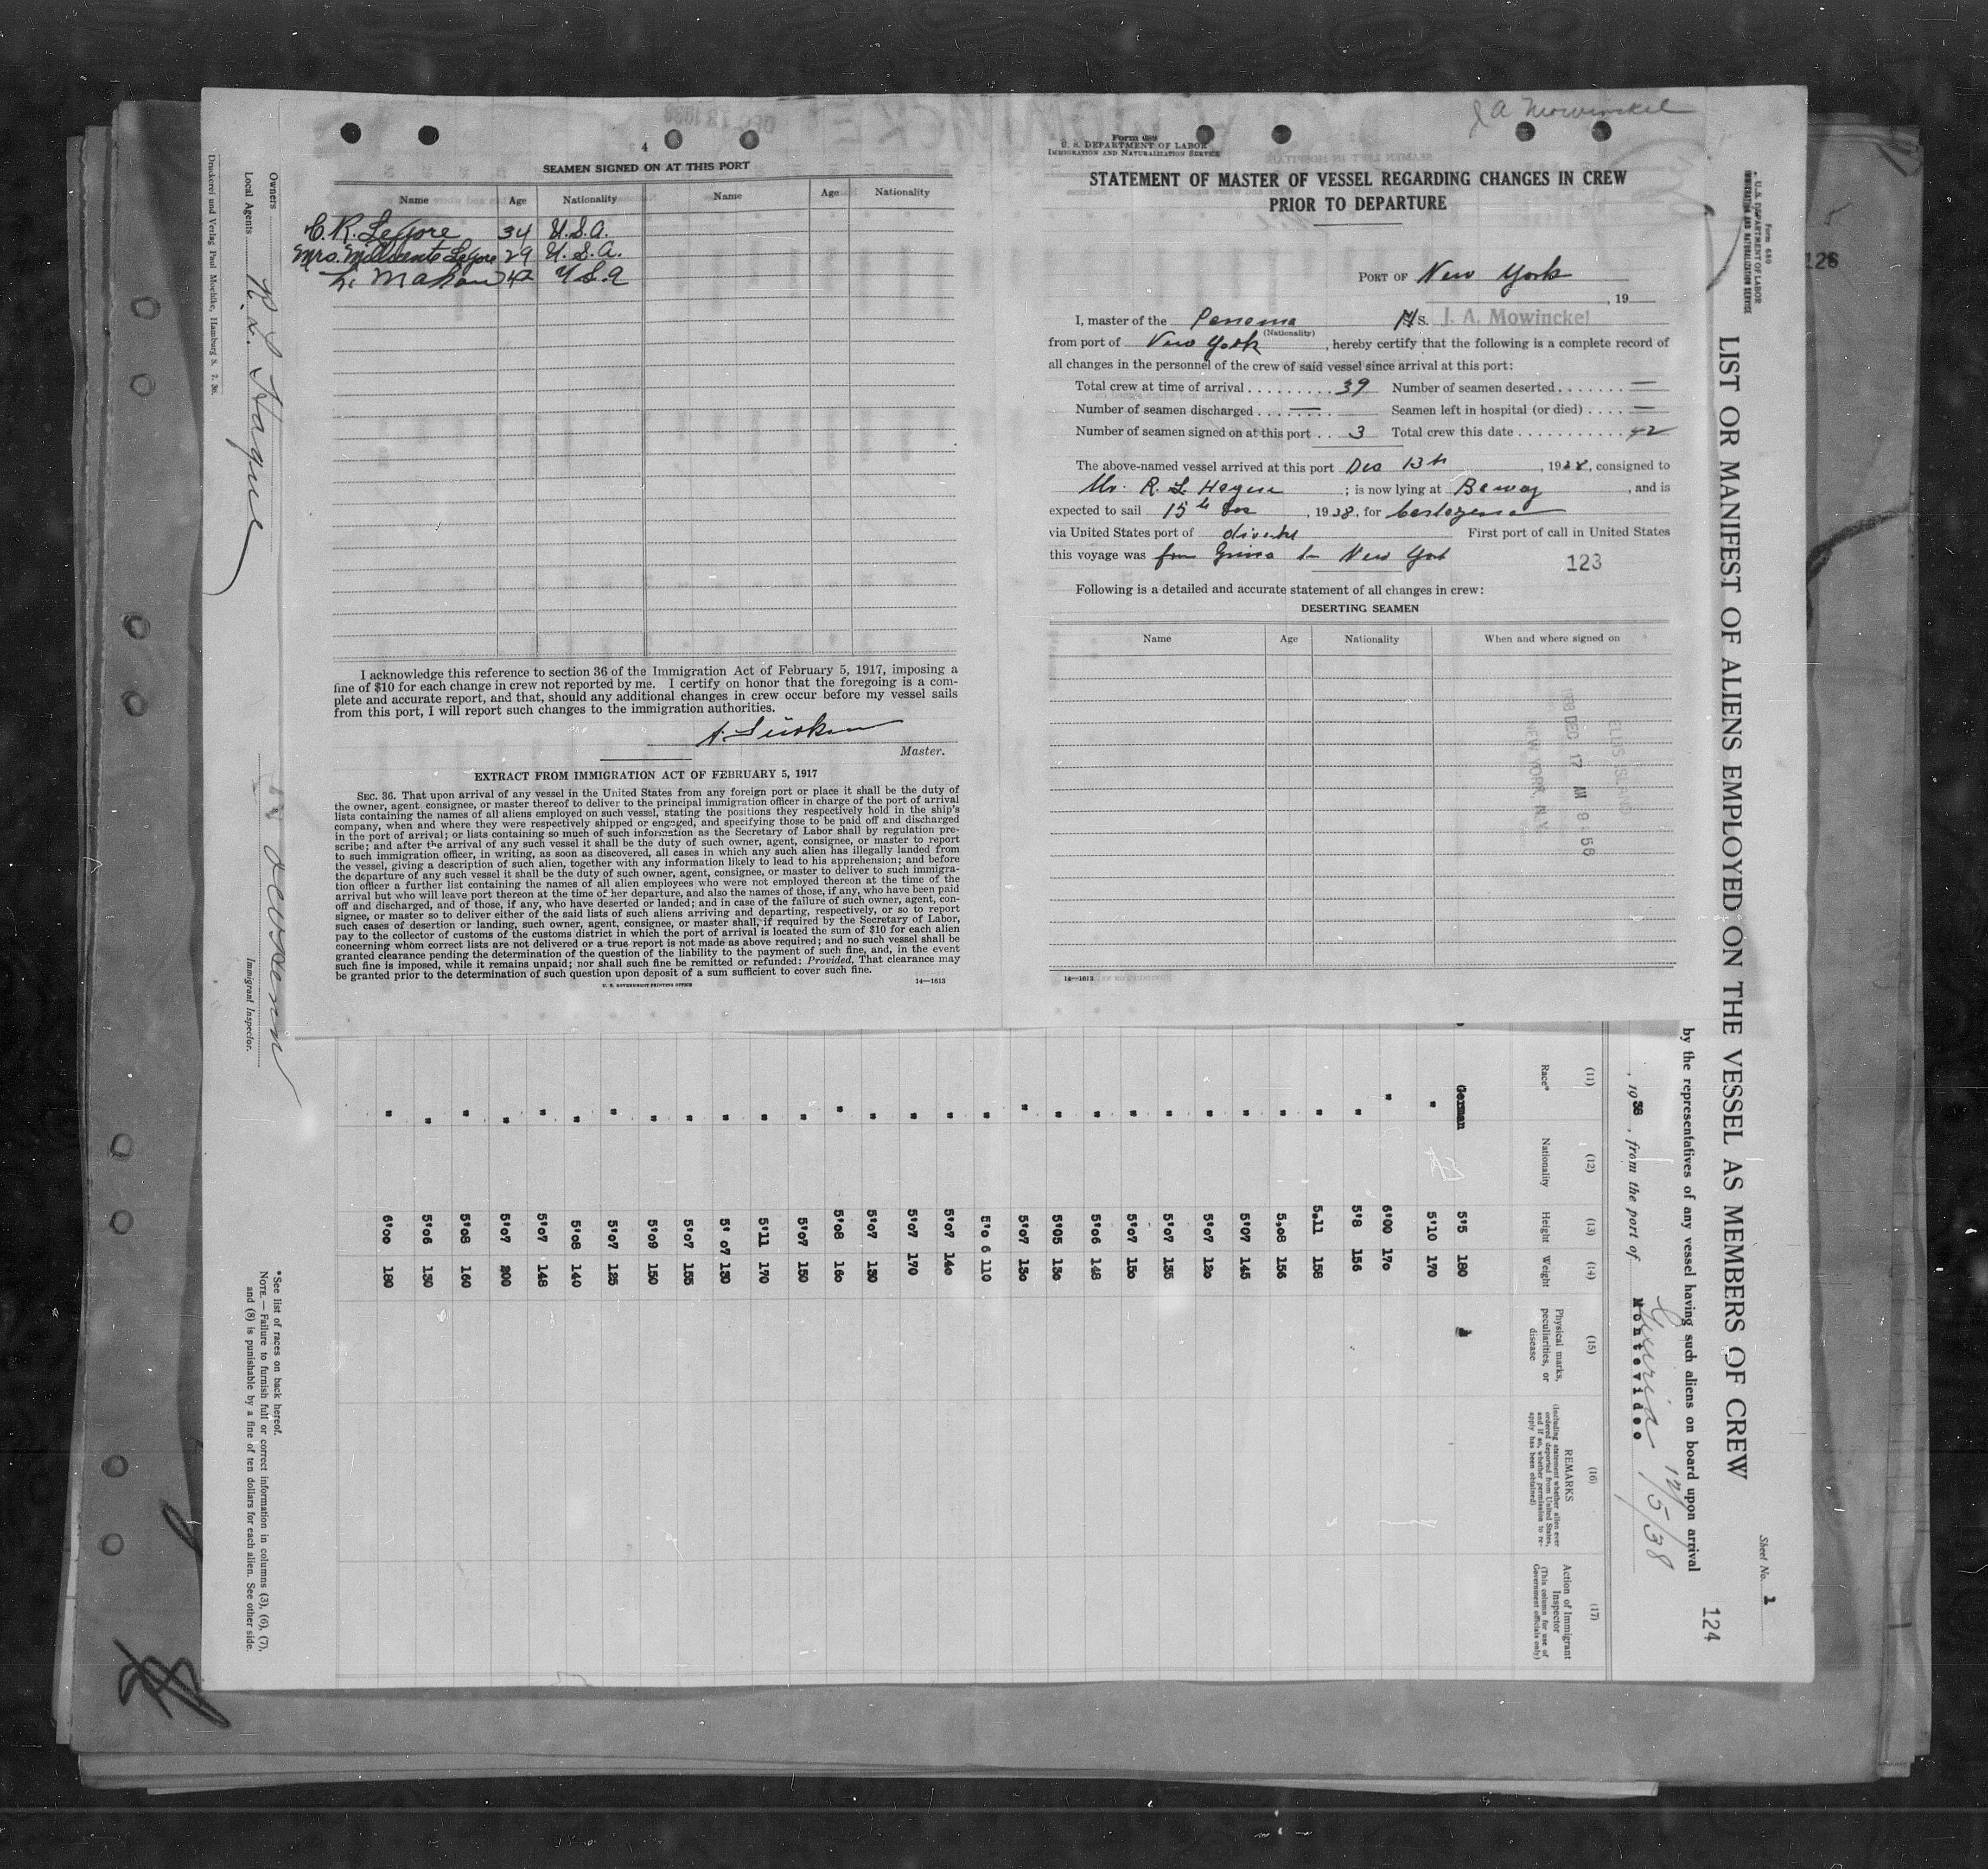 4
SEAMEN SIGNED ON AT THIS PORT
Name Age Nationality Name Age Nationality
C. R. LeGore 34 U.S.A.
Mrs. LeGore 29 U.S.A.
L. Mahan 42 U.S.A
I acknowledge this reference to section 36 of the Immigration Act of February 5, 1917, imposing a
fine of $10 for each change in crew not reported by me. I certify on honor that the foregoing is a com-
plete and accurate report, and that, should any additional changes in crew occur before my vessel sails
from this port, I will report such changes to the immigration authorities.
Master.
EXTRACT FROM IMMIGRATION ACT OF FEBRUARY 5, 1917
SEC. 36. That upon arrival of any vessel in the United States from any foreign port or place it shall be the duty of
the owner, agent, consignee, or master thereof to deliver to the principal immigration officer in charge of the port of arrival
lists containing the names of all aliens employed on such vessel, stating the positions they respectively hold in the ship's
company, when and where they were respectively shipped or engaged, and specifying those to be paid off and discharged
in the port of arrival; or lists containing so much of such information as the Secretary of Labor shall by regulation pre-
scribe; and after the arrival of any such vessel it shall be the duty of such owner, agent, consignee, or master to report
to such immigration officer, in writing, as soon as discovered, all cases in which any such alien has illegally landed from
the vessel, giving a description of such alien, together with any information likely to lead to his apprehension; and before
the departure of any such vessel it shall be the duty of such owner, agent, consignee, or master to deliver to such immigra-
tion officer a further list containing the names of all alien employees who were not employed thereon at the time of the
arrival but who will leave port thereon at the time of her departure, and also the names of those, if any, who have been paid
off and discharged, and of those, if any, who have deserted or landed; and in case of the failure of such owner, agent, con-
signee, or master so to deliver either of the said lists of such aliens arriving and departing, respectively, or so to report
such cases of desertion or landing, such owner, agent, consignee, or master shall, if required by the Secretary of Labor,
pay to the collector of customs of the customs district in which the port of arrival is located the sum of $10 for each alien
concerning whom correct lists are not delivered or a true report is not made as above required; and no such vessel shall be
granted clearance pending the determination of the question of the liability to the payment of such fine, and, in the event
such fine is imposed, while it remains unpaid; nor shall such fine be remitted or refunded: Provided, That clearance may
be granted prior to the determination of such question upon deposit of a sum sufficient to cover such fine.
U. S. GOVERNMENT PRINTING OFFICE 14—1613
J A Mowinckel
Form 689
U. S. DEPARTMENT OF LABOR
IMMIGRATION AND NATURALIZATION SERVICE
STATEMENT OF MASTER OF VESSEL REGARDING CHANGES IN CREW
PRIOR TO DEPARTURE
PORT OF New York
, 19
I, master of the Panama MS. J. A. Mowinckel
(Nationality)
from port of New York, hereby certify that the following is a complete record of
all changes in the personnel of the crew of said vessel since arrival at this port:
Total crew at time of arrival 39 Number of seamen deserted —
Number of seamen discharged — Seamen left in hospital (or died) —
Number of seamen signed on at this port 3 Total crew this date 42
The above-named vessel arrived at this port Dec 13th, 1938, consigned to
Mr. R. L. Hague; is now lying at, and is
expected to sail 15th Dec, 1938, for Cartagena
via United States port of First port of call in United States
this voyage was from Guiria to New York
123
Following is a detailed and accurate statement of all changes in crew:
DESERTING SEAMEN
Name Age Nationality When and where signed on
ELLIS ISLAND
1938 DEC 17 AM 9 56
NEW YORK, N.Y.
14—1613
Form 680
U. S. DEPARTMENT OF LABOR
IMMIGRATION AND NATURALIZATION SERVICE
126
LIST OR MANIFEST OF ALIENS EMPLOYED ON THE VESSEL AS MEMBERS OF CREW
Sheet No. 1
124
by the representatives of any vessel having such aliens on board upon arrival
, 1938, from the port of Montevideo Guiria 12/5/38
(11) (12) (13) (14) (15) (16) (17)
Race* Nationality Height Weight Physical marks, peculiarities, or disease REMARKS (Including statement whether alien ever ordered deported from United States, and if so, whether permission to re-apply has been obtained) Action of Immigrant Inspector (This column for use of Government officials only)
German 5'5 180
" 5'10 170
" 6'00 170
" 5'8 156
" 5.11 158
" 5.08 156
" 5'07 145
" 5'07 120
" 5'07 135
" 5'07 150
" 5'06 148
" 5'05 130
" 5'07 130
" 5'0 6 110
" 5'07 140
" 5'07 170
" 5'07 130
" 5'08 160
" 5'07 150
" 5'11 170
" 5' 07 130
" 5'07 155
" 5'09 150
" 5'07 125
" 5'08 140
" 5'07 148
" 5'07 200
" 5'08 160
" 5'06 130
" 6'00 180
*See list of races on back hereof.
NOTE.—Failure to furnish full or correct information in columns (3), (6), (7),
and (8) is punishable by a fine of ten dollars for each alien. See other side.
Owners
Local Agents R. L. Hague
Immigrant Inspector.
Druckerei und Verlag Paul Moehlke, Hamburg 8. 7. 36.